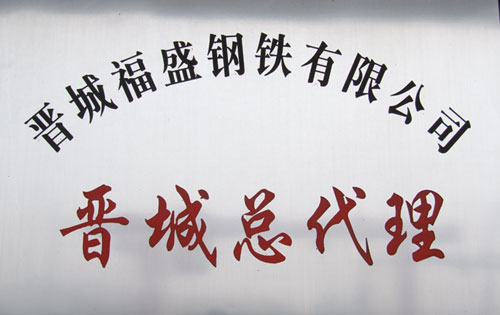 晋城福盛钢铁有限公司
晋城总代理